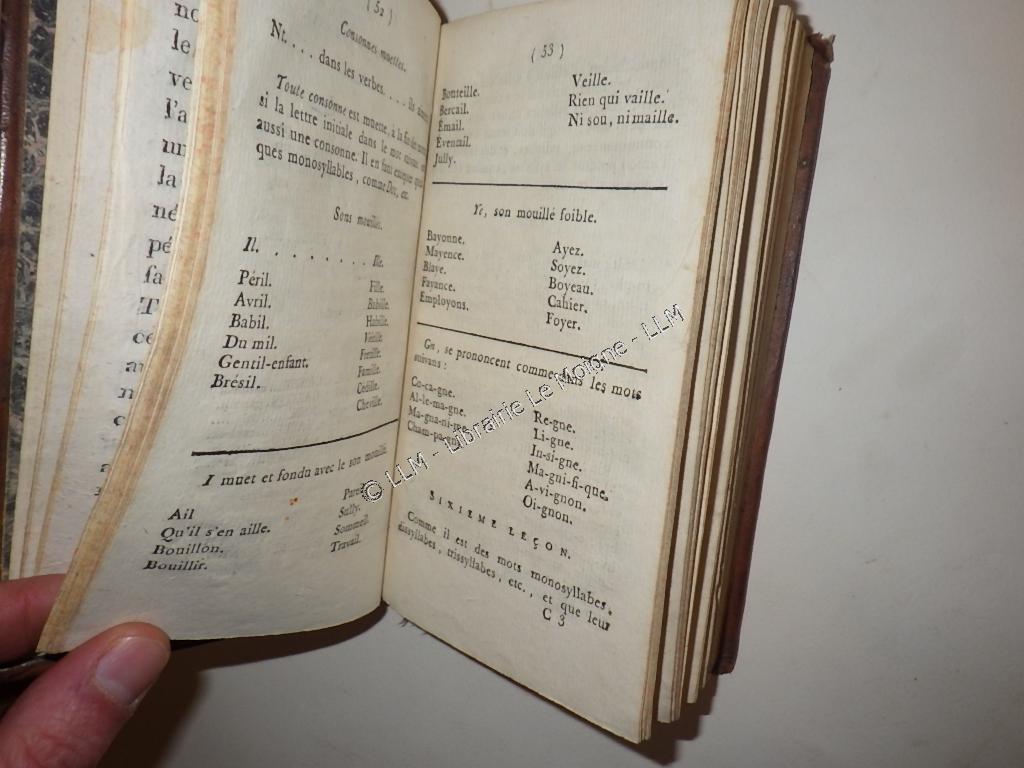 no
le
ve
l'a
un
la
né
pé
fa
T
ce
( 52 )
Consonnes muettes.
Nt. . . . dans les verbes. . . . ils
Toute consonne est muette, à la fin des
si la lettre initiale dans le mot suivant
aussi une consonne. Il en faut excepter quel-
ques monosyllabes, comme Duc, etc.
Sons mouillés.
Il. . . . . . . . . Ille.
Péril. Fille.
Avril. Babille.
Babil. Habille.
Du mil.
Gentil-enfant. Famille.
Brésil. Cédille.
Cheville.
I muet et fondu avec le son mouillé.
Ail
Qu'il s'en aille. Sully.
Bouillon. Sommeil.
Bouillir. Travail.
( 53 )
Bouteille. Veille.
Bercail. Rien qui vaille.
Émail. Ni sou, ni maille.
Éventail.
Jully.
Ye, son mouillé foible.
Bayonne. Ayez.
Mayence. Soyez.
Blaye. Boyeau.
Fayance. Cahier.
Employons. Foyer.
Gn, se prononcent comme dans les mots
suivans :
Co-ca-gne. Re-gne.
Al-le-ma-gne. Li-gne.
Ma-gna-ni-me. In-si-gne.
Cham-pa-gne. Ma-gni-fi-que.
A-vi-gnon.
Oi-gnon.
SIXIEME LEÇON.
Comme il est des mots monosyllabes,
dissyllabes, trissyllabes, etc., et que leur
C 3
© LLM - Librairie Le Moigne - LLM